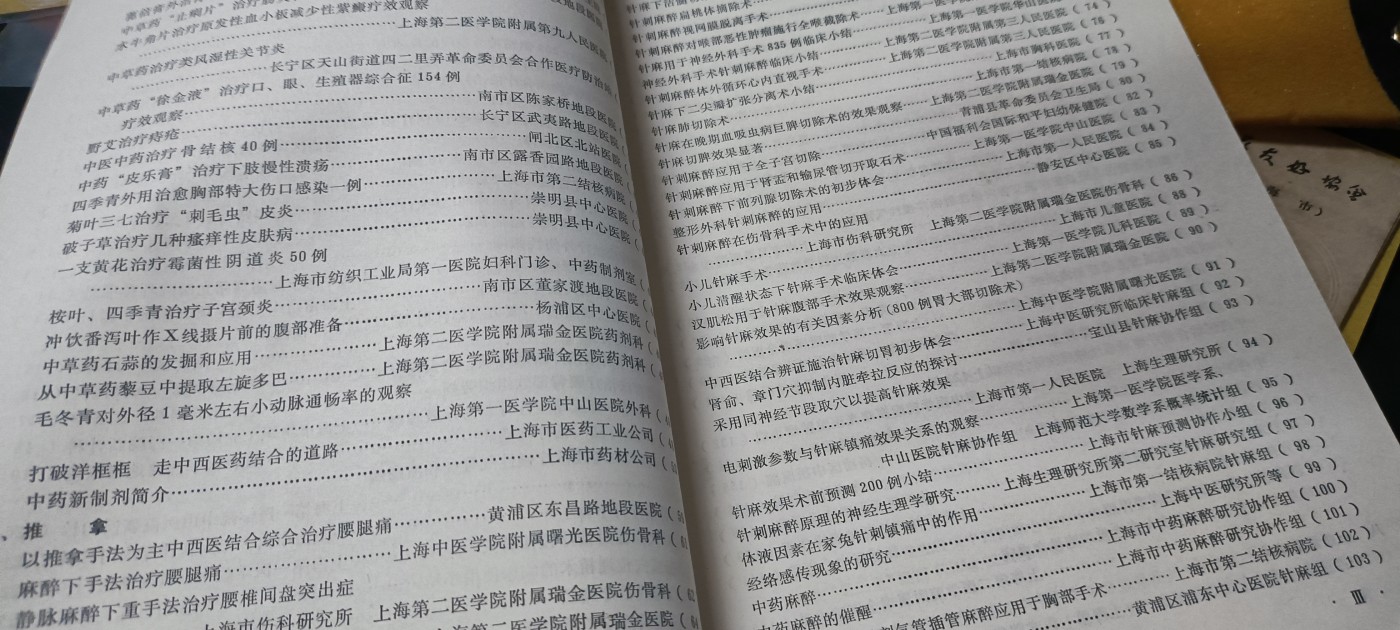 中草药“止痢片”治疗
水牛角片治疗原发性血小板减少性紫癜疗效观察
上海第二医学院附属第九人民医院
中草药治疗类风湿性关节炎
长宁区天山街道四二里弄革命委员会合作医疗防治
中草药“徐金液”治疗口、眼、生殖器综合征154例
疗效观察……南市区陈家桥地段医院
野艾治疗痔疮……长宁区武夷路地段医院
中医中药治疗骨结核40例……闸北区北站医院
中药“皮乐膏”治疗下肢慢性溃疡……南市区露香园路地段医院
四季青外用治愈胸部特大伤口感染一例……上海市第二结核病院
菊叶三七治疗“刺毛虫”皮炎……崇明县中心医院
破子草治疗几种瘙痒性皮肤病……崇明县中心医院
一支黄花治疗霉菌性阴道炎50例
……上海市纺织工业局第一医院妇科门诊、中药制剂室
桉叶、四季青治疗子宫颈炎……南市区董家渡地段医院
冲饮番泻叶作X线摄片前的腹部准备……杨浦区中心医院
中草药石蒜的发掘和应用……上海第二医学院附属瑞金医院药剂科
从中草药藜豆中提取左旋多巴……上海第二医学院附属瑞金医院药剂科
毛冬青对外径1毫米左右小动脉通畅率的观察
……上海第一医学院中山医院外科
打破洋框框 走中西医药结合的道路……上海市医药工业公司
中药新制剂简介……上海市药材公司
、推 拿
以推拿手法为主中西医结合综合治疗腰腿痛……黄浦区东昌路地段医院
麻醉下手法治疗腰腿痛……上海中医学院附属曙光医院伤骨科
静脉麻醉下重手法治疗腰椎间盘突出症
上海市伤科研究所 上海第二医学院附属瑞金医院伤骨科
上海第二医学院附属瑞金医院
针刺麻醉扁桃体摘除术
针刺麻醉视网膜脱离手术……(74)
针刺麻醉对喉部恶性肿瘤施行全喉截除术……上海第一医学院华山医院(76)
针麻用于神经外科手术835例临床小结……上海第二医学院附属第三人民医院(77)
神经外科手术针刺麻醉临床小结……上海第二医学院附属第三人民医院(78)
针刺麻醉体外循环心内直视手术……上海市胸科医院(79)
针麻下二尖瓣扩张分离术小结……上海市第一结核病院(80)
针麻肺切除术……上海第二医学院附属瑞金医院(82)
针麻在晚期血吸虫病巨脾切除术的效果观察……青浦县革命委员会卫生局(83)
针麻切脾效果显著……中国福利会国际和平妇幼保健院(84)
针刺麻醉应用于全子宫切除……上海第一医学院中山医院(85)
针刺麻醉应用于肾盂和输尿管切开取石术……上海市第一人民医院
针刺麻醉下前列腺切除术的初步体会……静安区中心医院
整形外科针刺麻醉的应用
针刺麻醉在伤骨科手术中的应用
……上海市伤科研究所 上海第二医学院附属瑞金医院伤骨科(86)
小儿针麻手术……上海市儿童医院(88)
小儿清醒状态下针麻手术临床体会……上海第一医学院儿科医院(89)
汉肌松用于针麻腹部手术效果观察……上海第二医学院附属瑞金医院(90)
影响针麻效果的有关因素分析(800例胃大部切除术)
……上海中医学院附属曙光医院(91)
中西医结合辨证施治针麻切胃初步体会……上海中医研究所临床针麻组(92)
肾俞、章门穴抑制内脏牵拉反应的探讨……宝山县针麻协作组(93)
采用同神经节段取穴以提高针麻效果
……上海市第一人民医院 上海生理研究所(94)
电刺激参数与针麻镇痛效果关系的观察……上海第一医学院医学系、
中山医院针麻协作组 上海师范大学数学系概率统计组(95)
针麻效果术前预测200例小结……上海市针麻预测协作小组(96)
针刺麻醉原理的神经生理学研究……上海生理研究所第二研究室针麻研究组(97)
体液因素在家兔针刺镇痛中的作用……上海市第一结核病院针麻组(98)
经络感传现象的研究……上海中医研究所等(99)
中药麻醉……上海市中药麻醉研究协作组(100)
中药麻醉的催醒……上海市中药麻醉研究协作组(101)
气管插管麻醉应用于胸部手术……上海市第二结核病院(102)
黄浦区浦东中心医院针麻组(103)
· Ⅲ ·